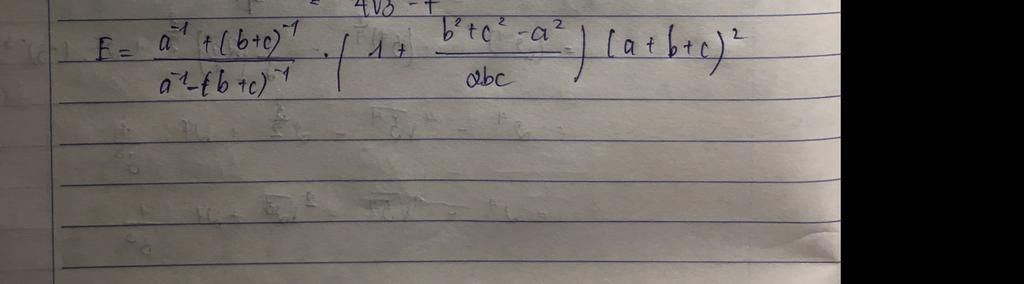 E = \frac{a^{-1} + (b+c)^{-1}}{a^{-1} - (b+c)^{-1}} \cdot \left( 1 + \frac{b^2 + c^2 - a^2}{2bc} \right) (a+b+c)^2